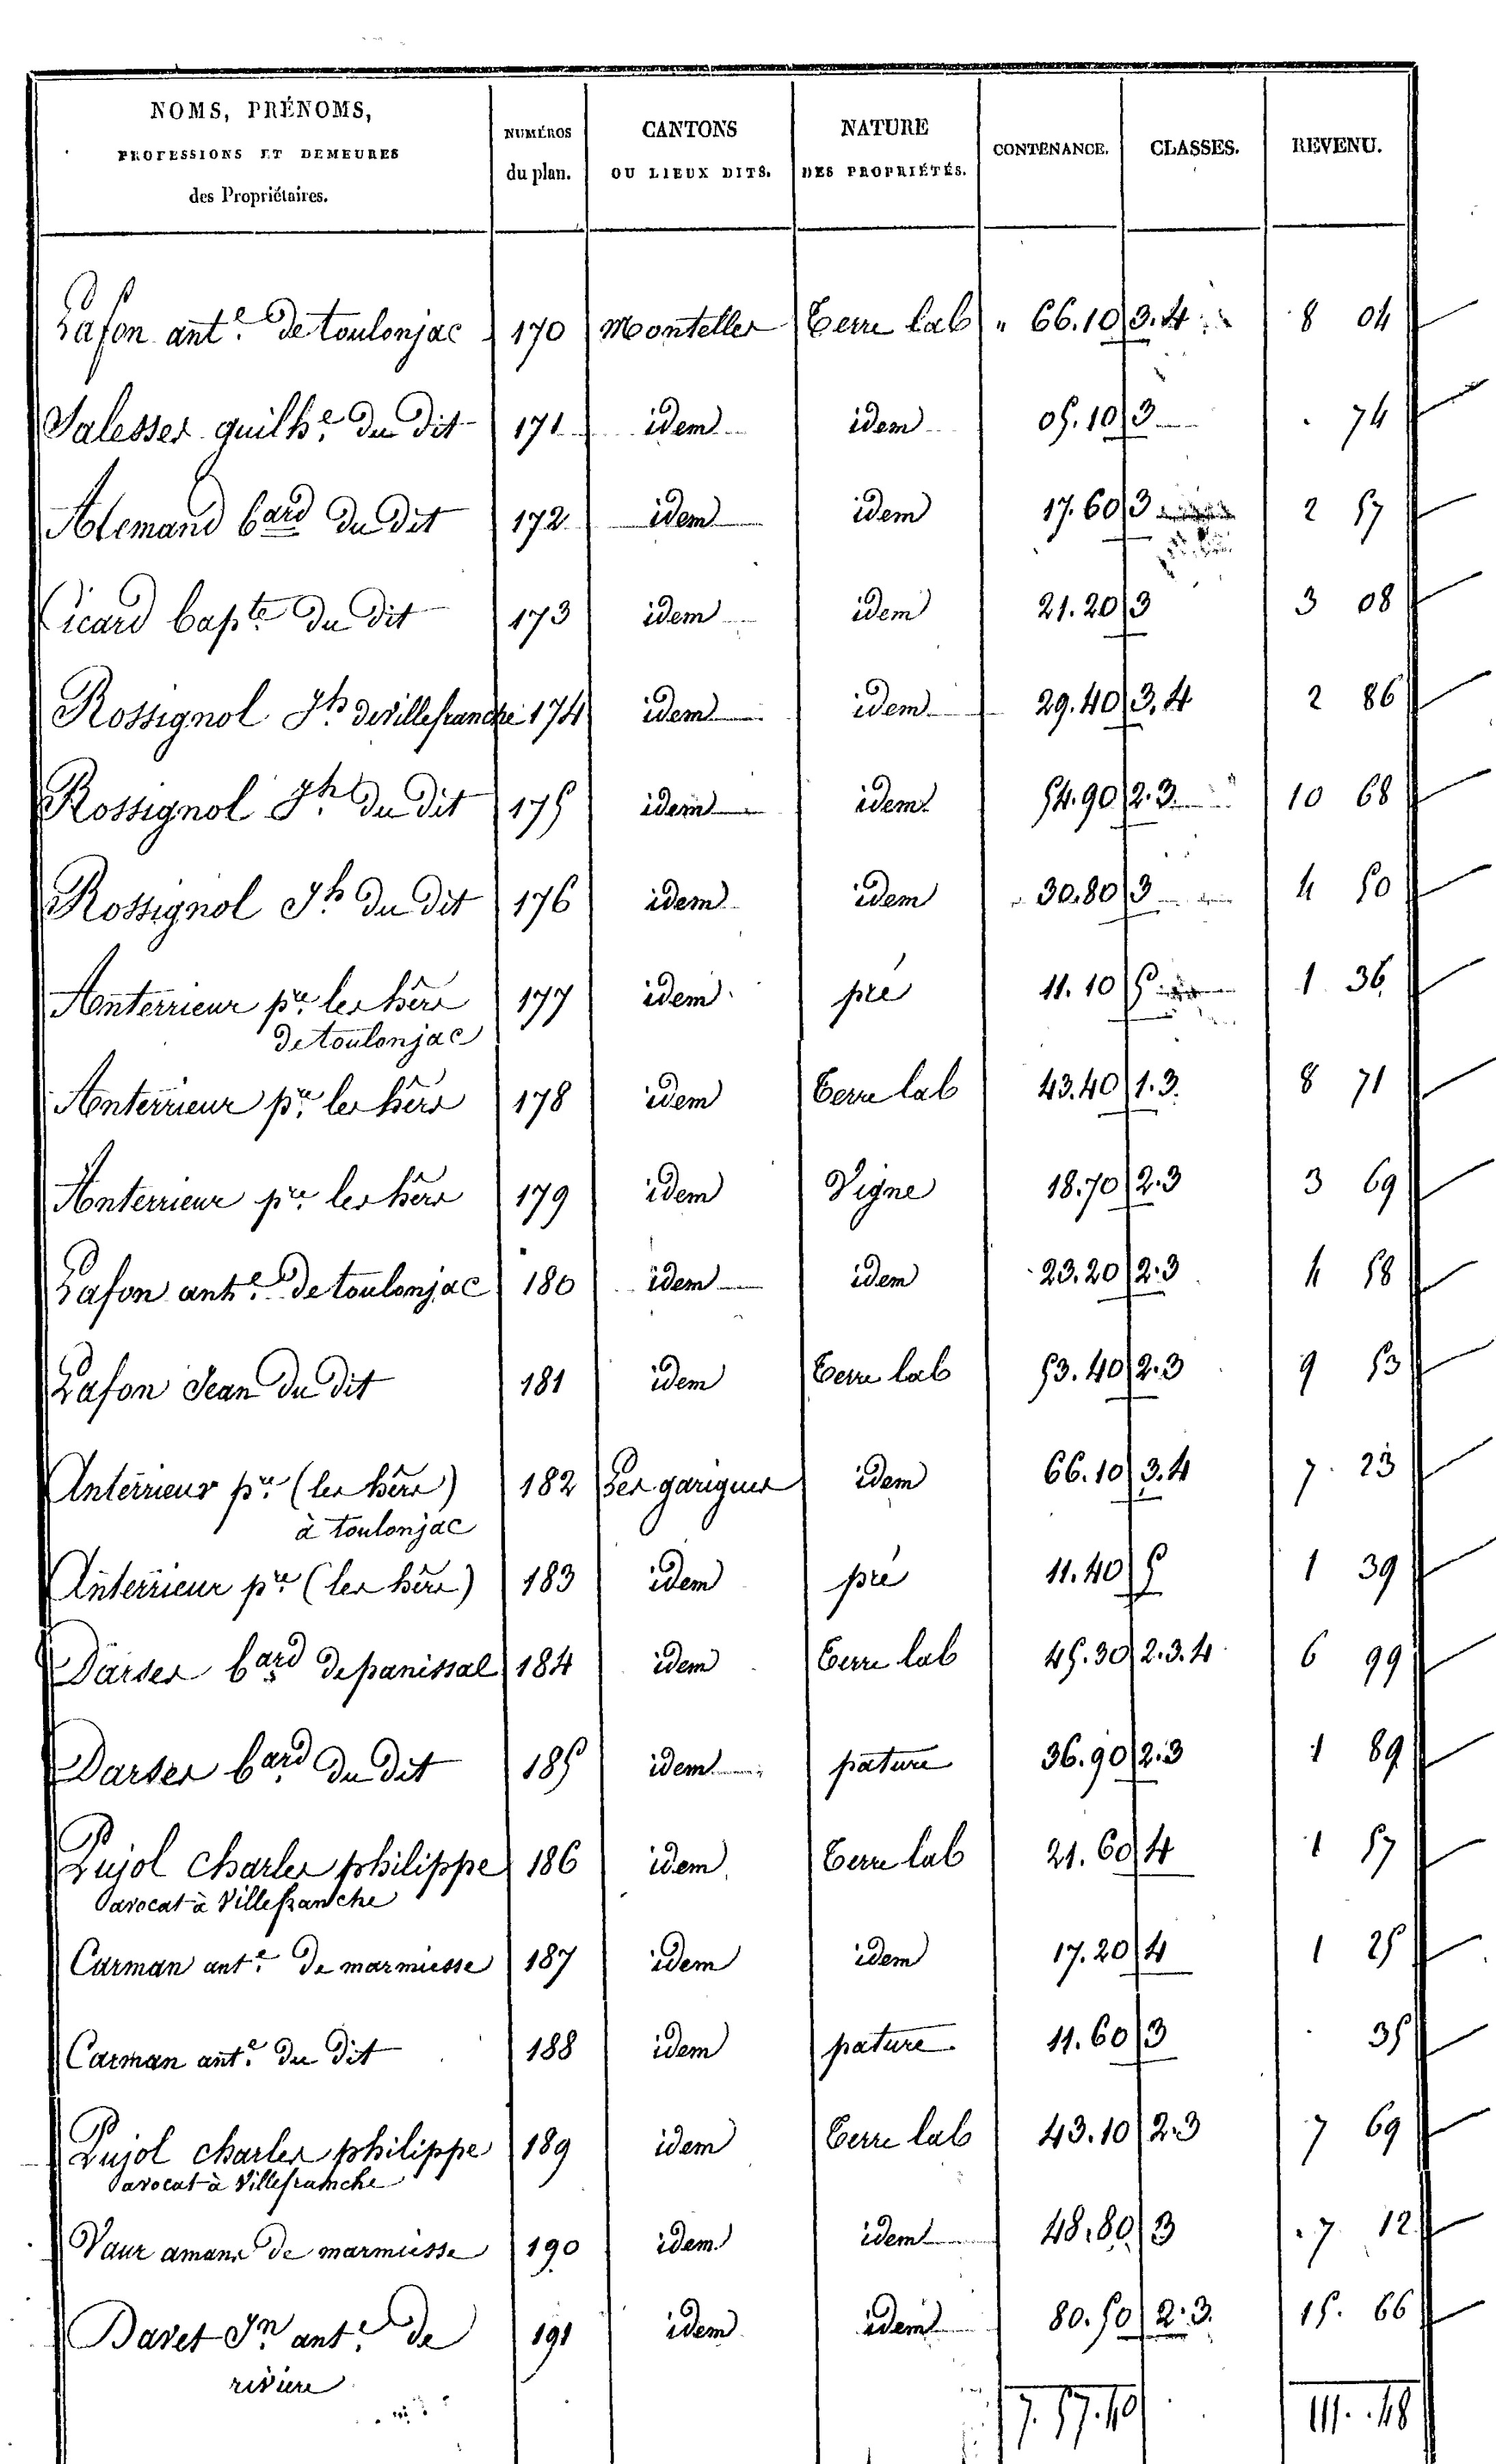 NOMS, PRÉNOMS, PROFESSIONS ET DEMEURES des Propriétaires. NUMÉROS du plan. CANTONS OU LIEUX DITS. NATURE DES PROPRIÉTÉS. CONTENANCE. CLASSES. REVENU.
Lafon ant.e de toulonjac 170 Monteller Terre lab " 66.10 3.4 8 04
Salesses guilh.e du dit 171 idem idem 05.10 3 . 74
Alemand b.ard du dit 172 idem idem 17.60 3 2 57
Cicard bap.te du dit 173 idem idem 21.20 3 3 08
Rossignol Jh de villefranche 174 idem idem 29.40 3.4 2 86
Rossignol Jh. du dit 175 idem idem 54.90 2.3 10 68
Rossignol Jh du dit 176 idem idem 30.80 3 4 50
Anterrieur p.re les hérs 177 idem pré 11.10 5 1 36
de toulonjac
Anterrieur p.re les hérs 178 idem Terre lab 43.40 1.3. 8 71
Anterrieur p.re les hérs 179 idem Vigne 18.70 2.3 3 69
Lafon ant.e de toulonjac 180 idem idem 23.20 2.3 4 58
Lafon Jean du dit 181 idem Terre lab 53.40 2.3 9 53
Anterrieur p.re (les hérs) 182 Les garigues idem 66.10 3.4 7 23
à toulonjac
Anterrieur p.re (les hérs) 183 idem pré 11.40 5 1 39
Darses b.ard de panissal 184 idem Terre lab 45.30 2.3.4 6 99
Darses b.ard du dit 185 idem pature 36.90 2.3 1 89
Pujol charles philippe 186 idem Terre lab 21.60 4 1 57
avocat à Villefranche
Carman ant.e de marmiesse 187 idem idem 17.20 4 1 25
Carman ant.e du dit 188 idem pature 11.60 3 . 35
Pujol charles philippe 189 idem Terre lab 43.10 2.3 7 69
avocat à Villefranche
Vaur amans de marmiesse 190 idem idem 48.80 3 7 12
Davet Jn ant.e de 191 idem idem 80.50 2.3. 15. 66
riviere
7.57.40 111.48